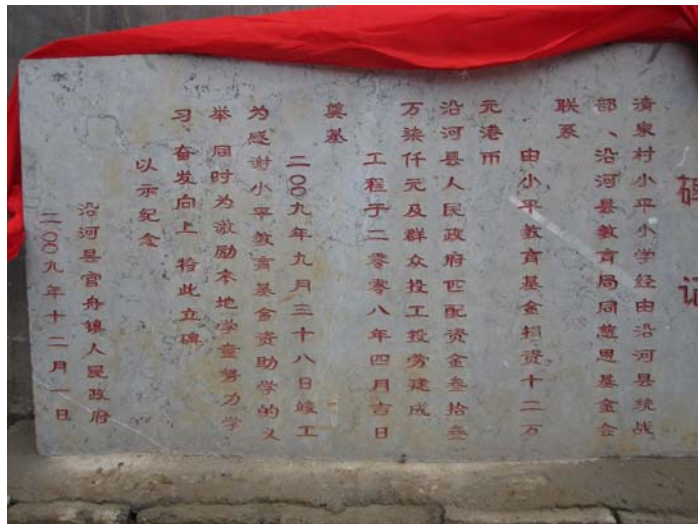 碑记
清泉村小平小学经由沿河县统战
部、沿河县教育局同慈恩基金会
联系
由小平教育基金捐资十二万
元港币
沿河县人民政府匹配资金叁拾叁
万柒仟元及群众投工投劳建成
工程于二零零八年四月吉日
奠基
二〇〇九年九月三十八日竣工
为感谢小平教育基金资助学的义
举 同时为激励本地学童努力学
习 奋发向上 特此立碑
以示纪念
沿河县官舟镇人民政府
二〇〇九年十二月一日